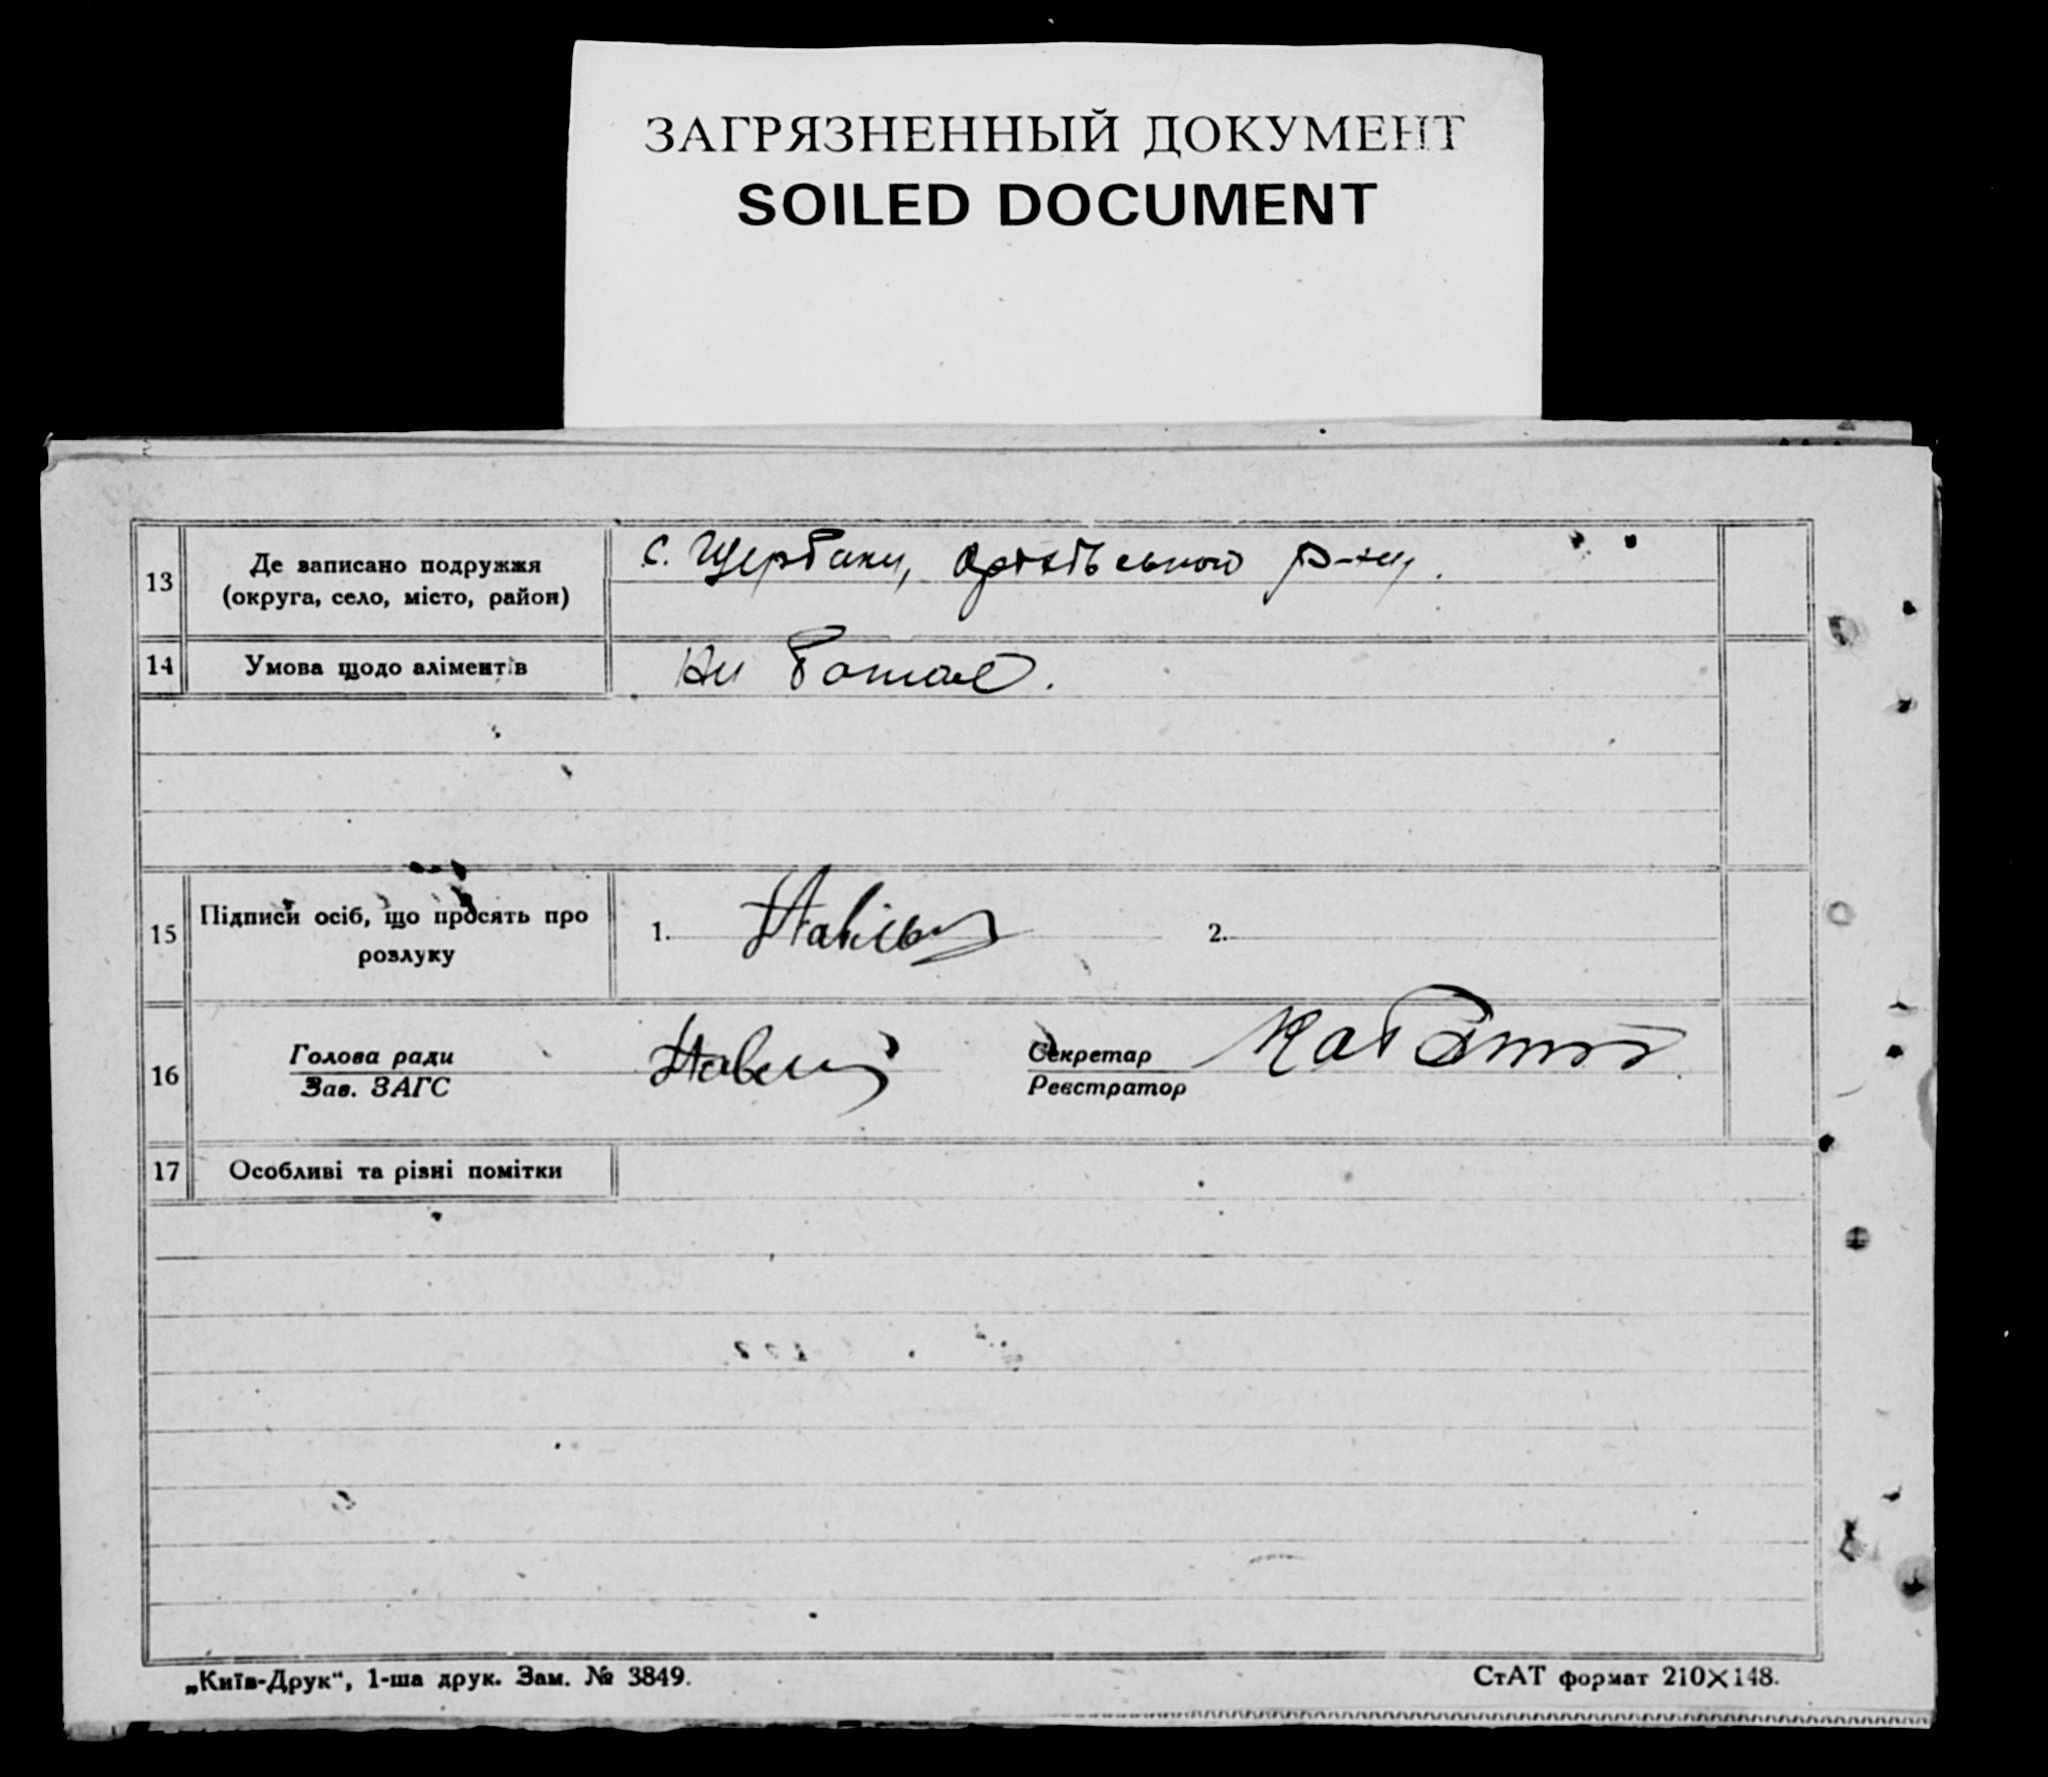 ЗАГРЯЗНЕННЫЙ ДОКУМЕНТ
SOILED DOCUMENT
13 Де записано подружжя (округа, село, місто, район) с. Щербаки, р-ну.
14 Умова щодо аліментів
15 Підписи осіб, що просять про розлуку 1. 2.
16 Голова ради Секретар
Зав. ЗАГС Реєстратор
17 Особливі та різні помітки
„Київ-Друк“, 1-ша друк. Зам. № 3849. СтАТ формат 210×148.